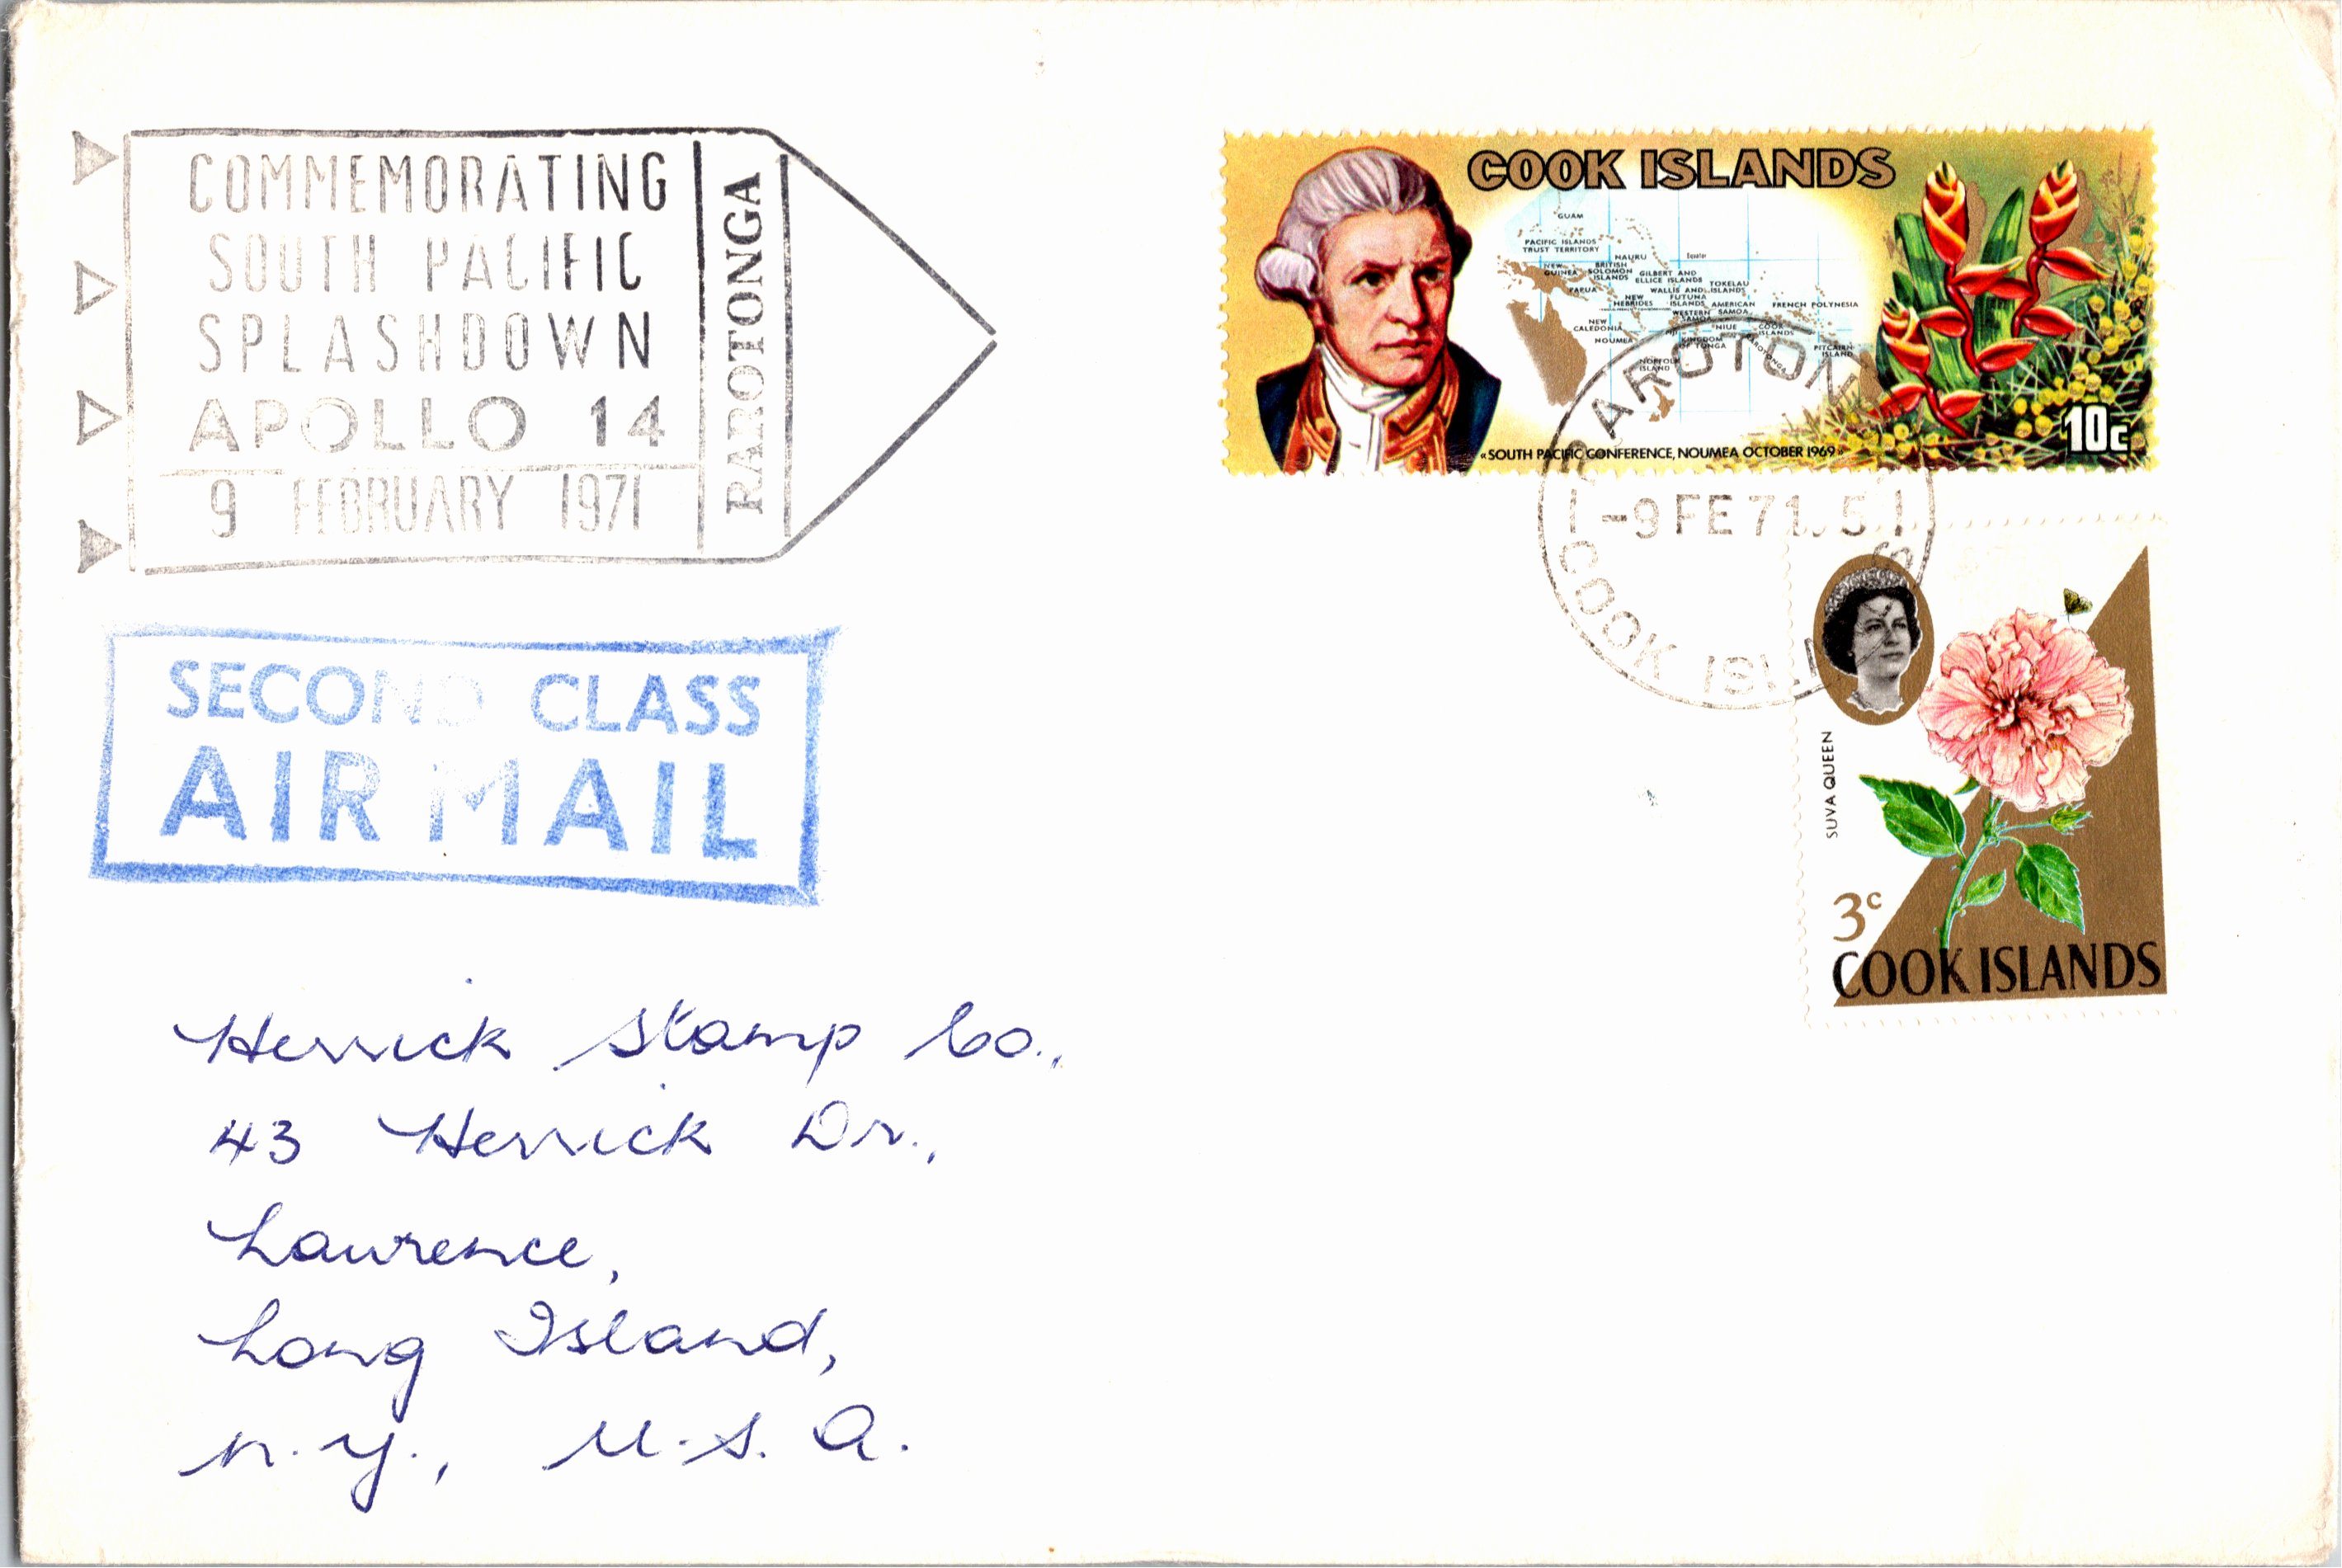 COMMEMORATING
SOUTH PACIFIC
SPLASHDOWN
APOLLO 14
9 FEBRUARY 1971
RAROTONGA
SECOND CLASS
AIR MAIL
COOK ISLANDS
GUAM
PACIFIC ISLANDS
TRUST TERRITORY
NAURU
Equator
NEW
GUINEA
BRITISH
SOLOMON
ISLANDS
GILBERT AND
ELLICE ISLANDS
TOKELAU
ISLANDS
PAPUA
WALLIS AND
FUTUNA
ISLANDS
NEW
HEBRIDES
AMERICAN
SAMOA
FRENCH POLYNESIA
WESTERN
SAMOA
NEW
CALEDONIA
NIUE
COOK
ISLANDS
NOUMEA
KINGDOM
OF TONGA
RAROTONGA
PITCAIRN
ISLAND
NORFOLK
ISLAND
«SOUTH PACIFIC CONFERENCE, NOUMEA OCTOBER 1969»
10c
-9 FE 71
COOK ISL
SUVA QUEEN
3c
COOK ISLANDS
Herrick Stamp Co.,
43 Herrick Dr.,
Lawrence,
Long Island,
N.Y., U.S.A.